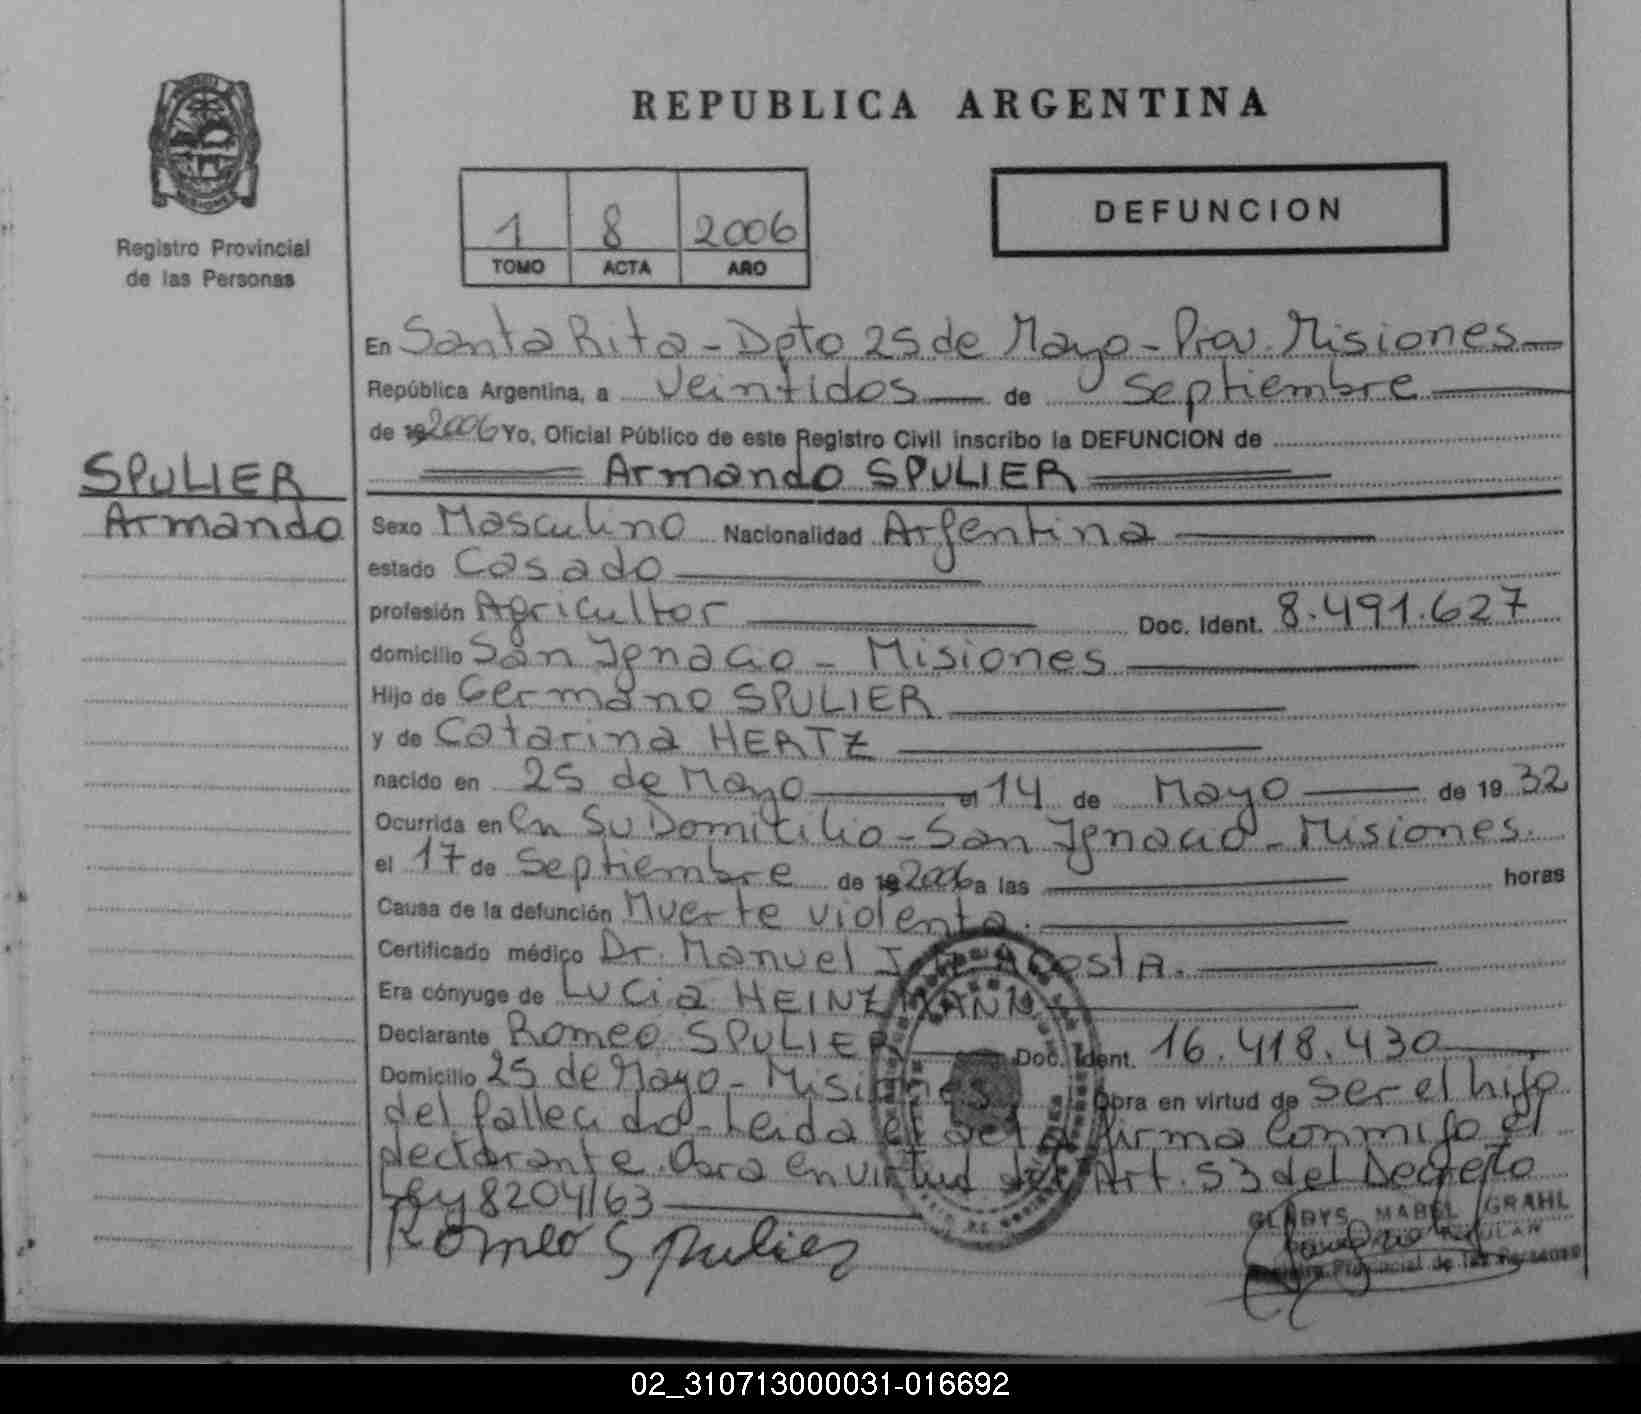 REPUBLICA ARGENTINA
Registro Provincial
de las Personas
1 8 2006
TOMO ACTA AÑO
DEFUNCION
En Santa Rita - Dpto 25 de Mayo - Prov. Misiones
República Argentina, a Veintidos de Septiembre
de 19 2006 Yo, Oficial Público de este Registro Civil inscribo la DEFUNCION de
Armando SPULIER
SPULIER
Armando
Sexo Masculino Nacionalidad Argentina
estado Casado
profesión Agricultor Doc. Ident. 8.491.627
domicilio San Ignacio - Misiones
Hijo de Germano SPULIER
y de Catarina HERTZ
nacido en 25 de Mayo el 14 de Mayo de 19 32
Ocurrida en en Su Domicilio - San Ignacio - Misiones.
el 17 de Septiembre de 19 2006 a las horas
Causa de la defunción Muerte violenta.
Certificado médico Dr. Manuel Acosta.
Era cónyuge de Lucia HEINZMANN
Declarante Romeo SPULIER Doc. Ident. 16.418.430
Domicilio 25 de Mayo - Misiones Obra en virtud de ser el hijo
del fallecido - Leida el acta firma conmigo el
declarante. Obra en virtud del Art. 53 del Decreto
Ley 8204/63
Romeo Spulier
GLADYS MABEL GRAHL
Registro Provincial de las Personas
02_310713000031-016692